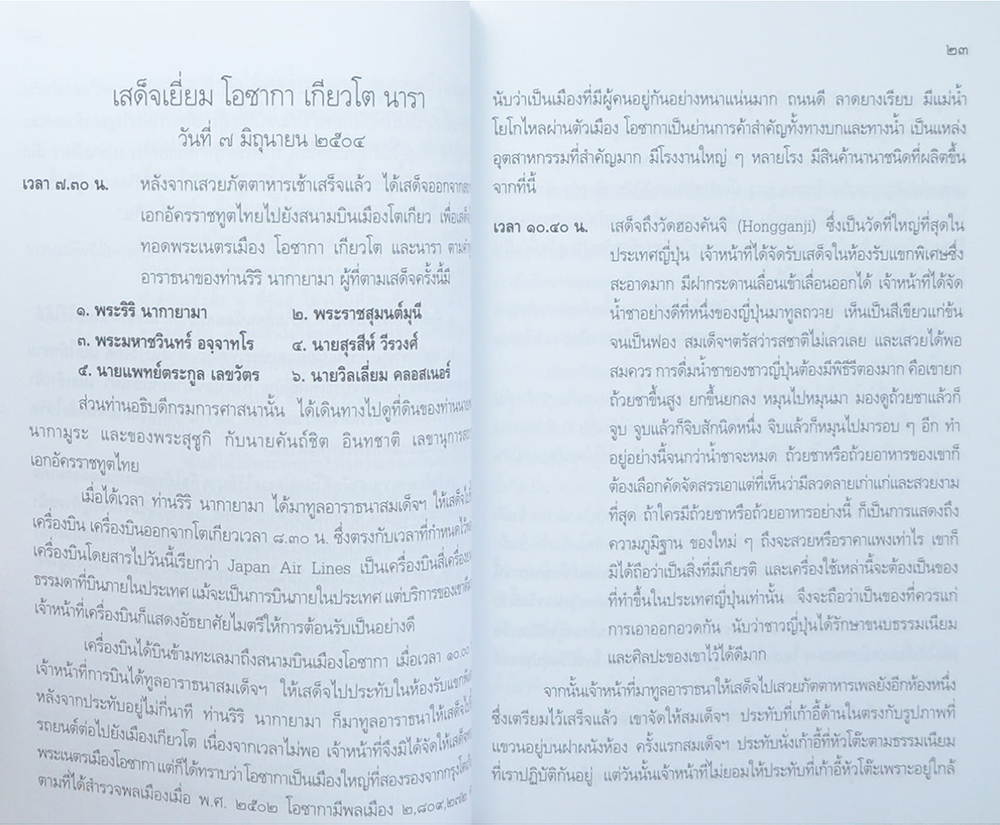 เสด็จเยี่ยม โอซากา เกียวโต นารา
วันที่ ๗ มิถุนายน ๒๕๐๔
เวลา ๗.๓๐ น. หลังจากเสวยภัตตาหารเช้าเสร็จแล้ว ได้เสด็จออกจาก
เอกอัครราชทูตไทยไปยังสนามบินเมืองโตเกียว เพื่อเสด็จ
ทอดพระเนตรเมือง โอซากา เกียวโต และนารา
อาราธนาของท่านริริ นากายามา ผู้ที่ตามเสด็จครั้งนี้มี
๑. พระริริ นากายามา ๒. พระราชสุมนต์มุนี
๓. พระมหาชวินทร์ อจฺจาทโร ๔. นายสุรสีห์ วีรวงศ์
๕. นายแพทย์ตระกูล เลขวัตร ๖. นายวิลเลี่ยม คลอสเนอร์
ส่วนท่านอธิบดีกรมการศาสนานั้น ได้เดินทางไปดูที่ดินของท่าน
นากามูระ และของพระสุซูกิ กับนายคันถ์ชิต อินทชาติ เลขานุการ
เอกอัครราชทูตไทย
เมื่อได้เวลา ท่านริริ นากายามา ได้มาทูลอาราธนาสมเด็จฯ ให้เสด็จ
เครื่องบิน เครื่องบินออกจากโตเกียวเวลา ๘.๓๐ น. ซึ่งตรงกับเวลาที่กำหนด
เครื่องบินโดยสารไปวันนี้เรียกว่า Japan Air Lines เป็นเครื่องบินสี่
ธรรมดาที่บินภายในประเทศ แม้จะเป็นการบินภายในประเทศ แต่บริการของเขา
เจ้าหน้าที่เครื่องบินก็แสดงอัธยาศัยไมตรีให้การต้อนรับเป็นอย่างดี
เครื่องบินได้บินข้ามทะเลมาถึงสนามบินเมืองโอซากา เมื่อเวลา ๑๐.๐๐
เจ้าหน้าที่การบินได้ทูลอาราธนาสมเด็จฯ ให้เสด็จไปประทับในห้องรับแขก
หลังจากประทับอยู่ไม่กี่นาที ท่านริริ นากายามา ก็มาทูลอาราธนาให้เสด็จ
รถยนต์ต่อไปยังเมืองเกียวโต เนื่องจากเวลาไม่พอ เจ้าหน้าที่จึงมิได้จัดให้เสด็จ
พระเนตรเมืองโอซากา แต่ก็ได้ทราบว่าโอซากาเป็นเมืองใหญ่ที่สองรองจากกรุง
ตามที่ได้สำรวจพลเมืองเมื่อ พ.ศ. ๒๕๐๒ โอซากามีพลเมือง ๒,๘๐๙,๒๗๒
๒๓
นับว่าเป็นเมืองที่มีผู้คนอยู่กันอย่างหนาแน่นมาก ถนนดี ลาดยางเรียบ มีแม่น้ำ
โยโกไหลผ่านตัวเมือง โอซากาเป็นย่านการค้าสำคัญทั้งทางบกและทางน้ำ เป็นแหล่ง
อุตสาหกรรมที่สำคัญมาก มีโรงงานใหญ่ ๆ หลายโรง มีสินค้านานาชนิดที่ผลิตขึ้น
จากที่นี้
เวลา ๑๐.๔๐ น. เสด็จถึงวัดฮองคันจิ (Hongganji) ซึ่งเป็นวัดที่ใหญ่ที่สุดใน
ประเทศญี่ปุ่น เจ้าหน้าที่ได้จัดรับเสด็จในห้องรับแขกพิเศษซึ่ง
สะอาดมาก มีฝากระดานเลื่อนเข้าเลื่อนออกได้ เจ้าหน้าที่ได้จัด
น้ำชาอย่างดีที่หนึ่งของญี่ปุ่นมาทูลถวาย เห็นเป็นสีเขียวแก่ข้น
จนเป็นฟอง สมเด็จฯตรัสว่ารสชาติไม่เลวเลย และเสวยได้พอ
สมควร การดื่มน้ำชาของชาวญี่ปุ่นต้องมีพิธีรีตองมาก คือเขายก
ถ้วยชาขึ้นสูง ยกขึ้นยกลง หมุนไปหมุนมา มองดูถ้วยชาแล้วก็
จูบ จูบแล้วก็จิบสักนิดหนึ่ง จิบแล้วก็หมุนไปมารอบ ๆ อีก ทำ
อยู่อย่างนี้จนกว่าน้ำชาจะหมด ถ้วยชาหรือถ้วยอาหารของเขาก็
ต้องเลือกคัดจัดสรรเอาแต่ที่เห็นว่ามีลวดลายเก่าแก่และสวยงาม
ที่สุด ถ้าใครมีถ้วยชาหรือถ้วยอาหารอย่างนี้ ก็เป็นการแสดงถึง
ความภูมิฐาน ของใหม่ ๆ ถึงจะสวยหรือราคาแพงเท่าไร เขาก็
มิได้ถือว่าเป็นสิ่งที่มีเกียรติ และเครื่องใช้เหล่านี้จะต้องเป็นของ
ที่ทำขึ้นในประเทศญี่ปุ่นเท่านั้น จึงจะถือว่าเป็นของที่ควรแก่
การเอาออกอวดกัน นับว่าชาวญี่ปุ่นได้รักษาขนบธรรมเนียม
และศิลปะของเขาไว้ได้ดีมาก
จากนั้นเจ้าหน้าที่มาทูลอาราธนาให้เสด็จไปเสวยภัตตาหารเพลยังอีกห้องหนึ่ง
ซึ่งเตรียมไว้เสร็จแล้ว เขาจัดให้สมเด็จฯ ประทับที่เก้าอี้ด้านในตรงกับรูปภาพที่
แขวนอยู่บนฝาผนังห้อง ครั้งแรกสมเด็จฯ ประทับนั่งเก้าอี้ที่หัวโต๊ะตามธรรมเนียม
ที่เราปฏิบัติกันอยู่ แต่วันนั้นเจ้าหน้าที่ไม่ยอมให้ประทับที่เก้าอี้หัวโต๊ะเพราะอยู่ใกล้